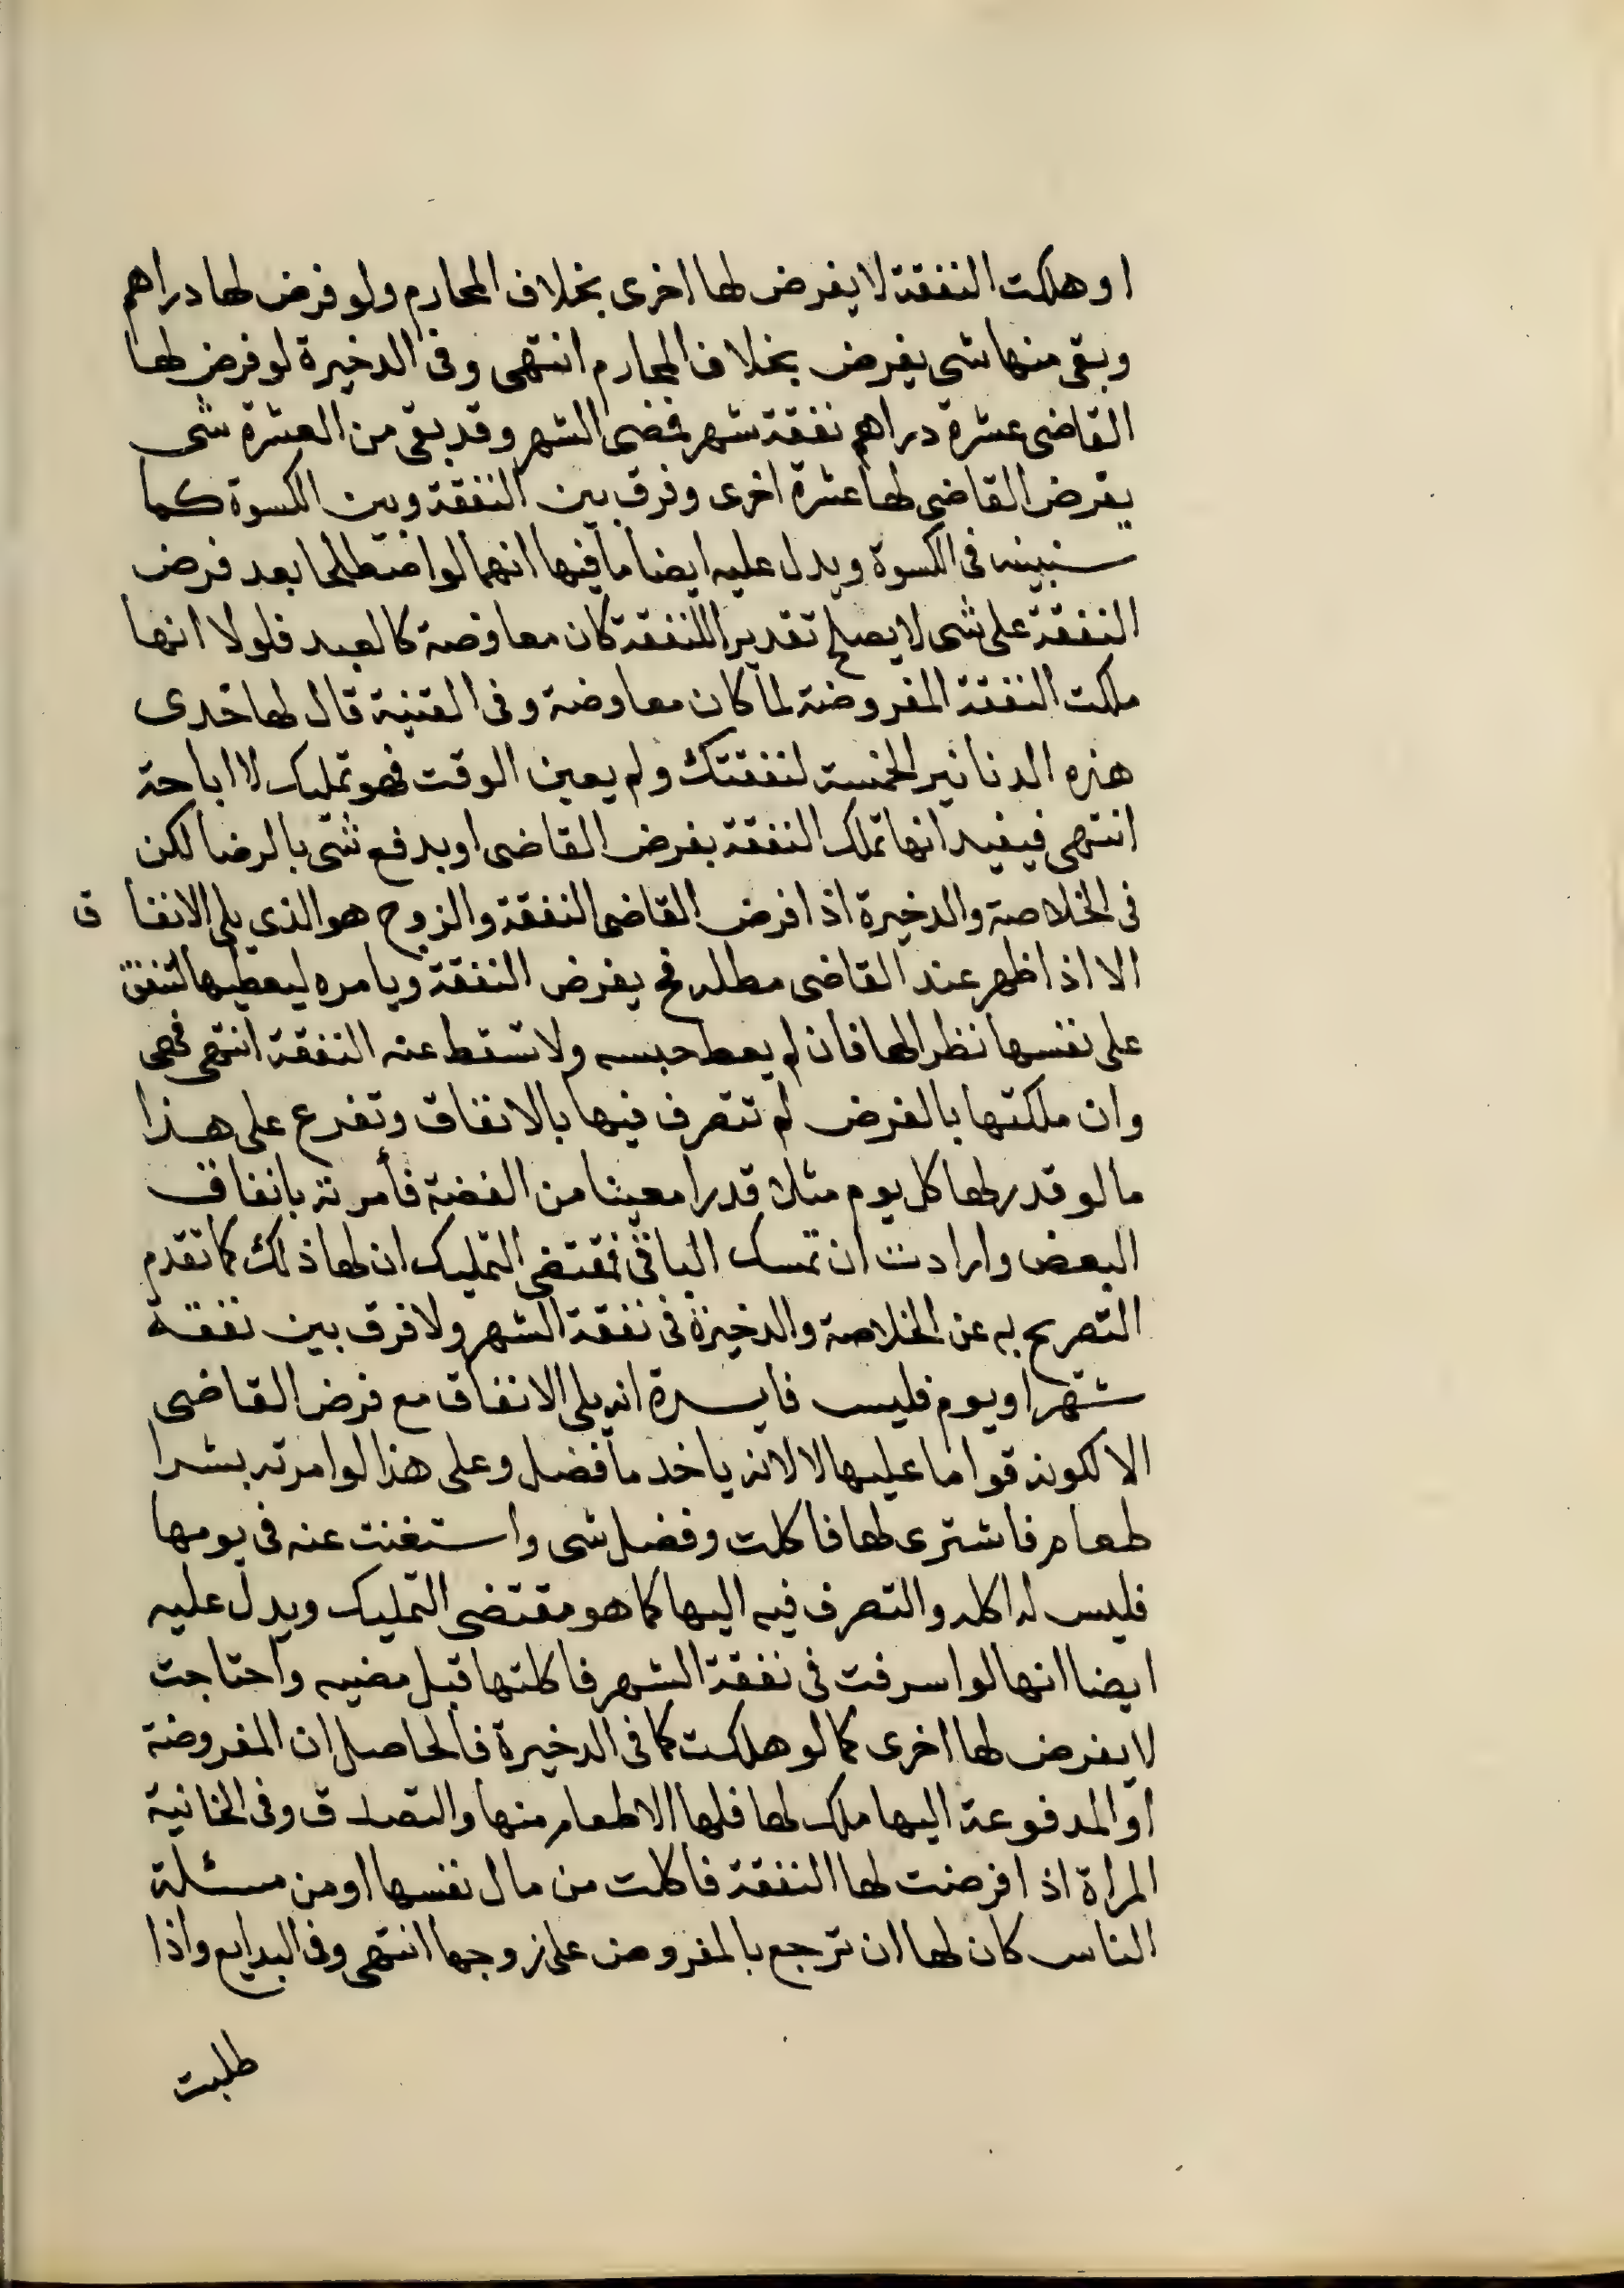 او هلكت النفقة لا يفرض لها اخرى بخلاف المحارم ولو فرض لها دراهم
وبقى منها شى يفرض بخلاف المحارم انتهى وفى الدخيرة لو فرض لها
القاضى عشرة دراهم نفقة شهر فمضى الشهر وقد بقى من العشرة شى
يفرض القاضى لها عشرة اخرى وفرق بين النفقة وبين الكسوة كما
سنبينه فى الكسوة ويدل عليه ايضا ما فيها انهما لو اصطلحا بعد فرض
النفقة على شى لا يصلح تقديرا للنفقة كان معاوضة كالعبد فلولا انها
ملكت النفقة المفروضة لما كان معاوضة وفى القنية قال لها خدى
هذه الدنانير الخمسة لنفقتك ولم يعين الوقت فهو تمليك لا اباحة
انتهى فيفيد انها تملك النفقة بفرض القاضى او بدفع شى بالرضا لكن
فى الخلاصة والدخيرة اذا فرض القاضى النفقة والزوج هو الذى يلى الانفاق
الا اذا ظهر عند القاضى مطله فح يفرض النفقة ويامره ليعطيها لتنفق
على نفسها نظرا لها فان لم يعط حبسه ولا تسقط عنه النفقة انتهى فهى
وان ملكتها بالفرض لم تتصرف فيها بالانفاق وتفرع على هذا
ما لو قدر لها كل يوم مثلا قدرا معينا من الفضة فأمرته بانفاق
البعض وارادت ان تمسك الباقى فمقتضى التمليك ان لها ذلك كما تقدم
التصريح به عن الخلاصة والدخيرة فى نفقة الشهر ولا فرق بين نفقة
شهر او يوم فليس فايدة انه يلى الانفاق مع فرض القاضى
الا لكونه قواما عليها لا لانه ياخد ما فضل وعلى هذا لو امرته بشرا
طعام فاشترى لها فاكلت وفضل شى واستغنت عنه فى يومها
فليس له اكله والتصرف فيه اليها كما هو مقتضى التمليك ويدل عليه
ايضا انها لو اسرفت فى نفقة الشهر فاكلتها قبل مضيه واحتاجت
لا يفرض لها اخرى كما لو هلكت كما فى الدخيرة فالحاصل ان المفروضة
او المدفوعة اليها ملك لها فلها الاطعام منها والتصدق وفى الخانية
المراة اذا فرضت لها النفقة فاكلت من مال نفسها او من مسئلة
الناس كان لها ان ترجع بالمفروض على زوجها انتهى وفى البدايع واذا
طلبت